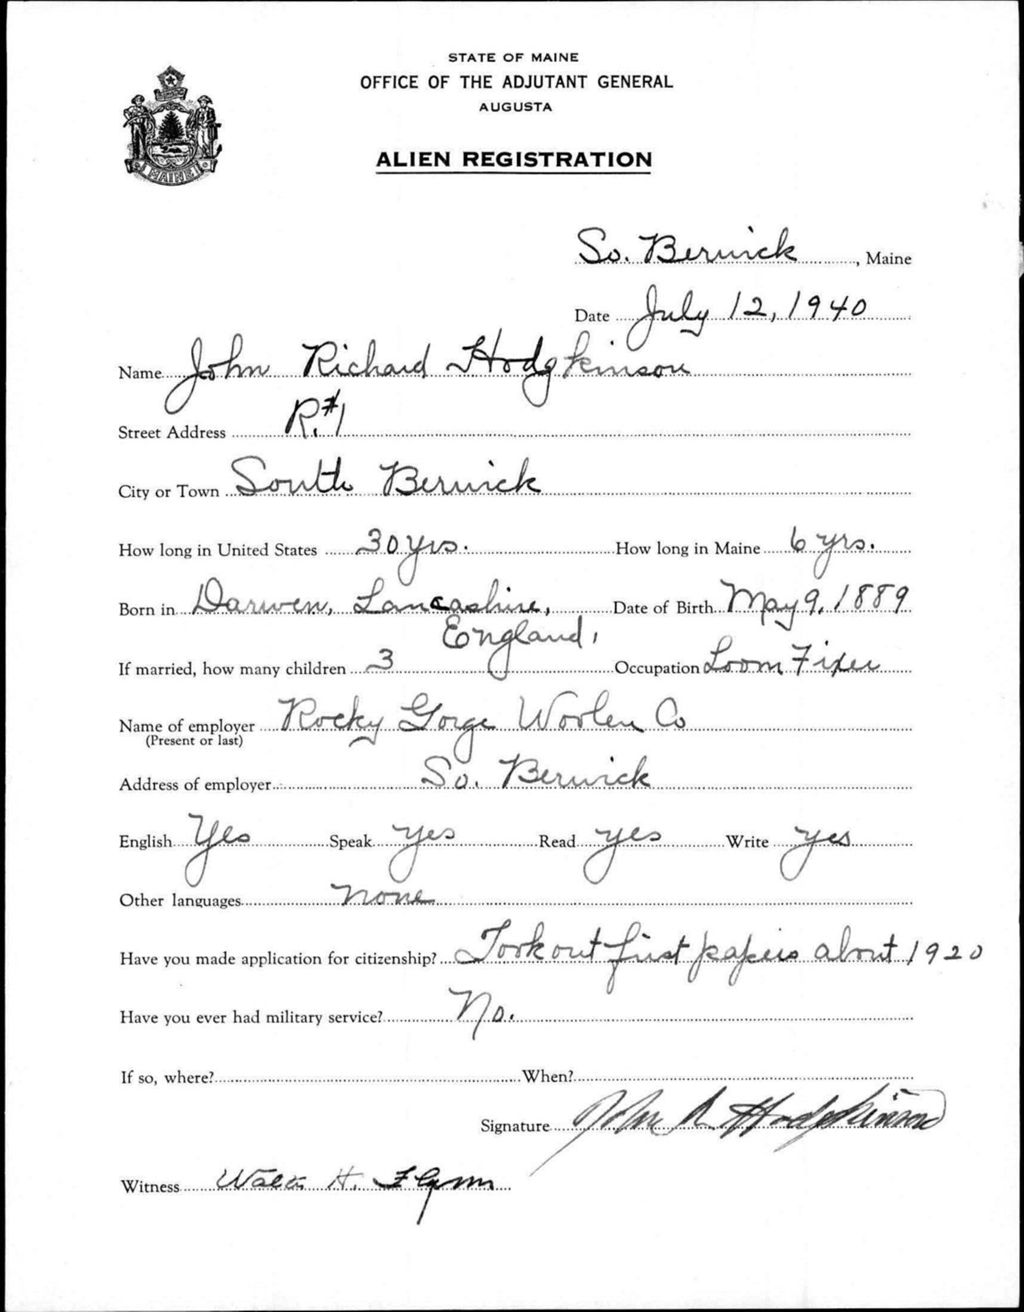 STATE OF MAINE
OFFICE OF THE ADJUTANT GENERAL
AUGUSTA
ALIEN REGISTRATION
MAINE
So. Berwick, Maine
Date July 12, 1940
Name John Richard Hodgkinson
Street Address R.#1
City or Town South Berwick
How long in United States 30 yrs. How long in Maine 6 yrs.
Born in Darwen, Lancashire, Date of Birth May 9, 1889
England,
If married, how many children 3 Occupation Loom Fixer
Name of employer Rocky Gorge Woolen Co
(Present or last)
Address of employer So. Berwick
English Yes Speak yes Read yes Write yes
Other languages none
Have you made application for citizenship? Took out first papers about 1920
Have you ever had military service? No.
If so, where? When?
Signature John R Hodgkinson
Witness H. Flynn